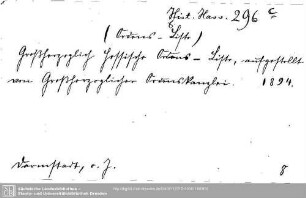 Hist. Hass. 296 c
(Ordens-Liste)
Großherzoglich Hessische Ordens-Liste, aufgestellt
von Großherzoglicher Ordenskanzlei. 1894.
Darmstadt, o. J. 8
Sächsische Landesbibliothek -
Staats- und Universitätsbibliothek Dresden